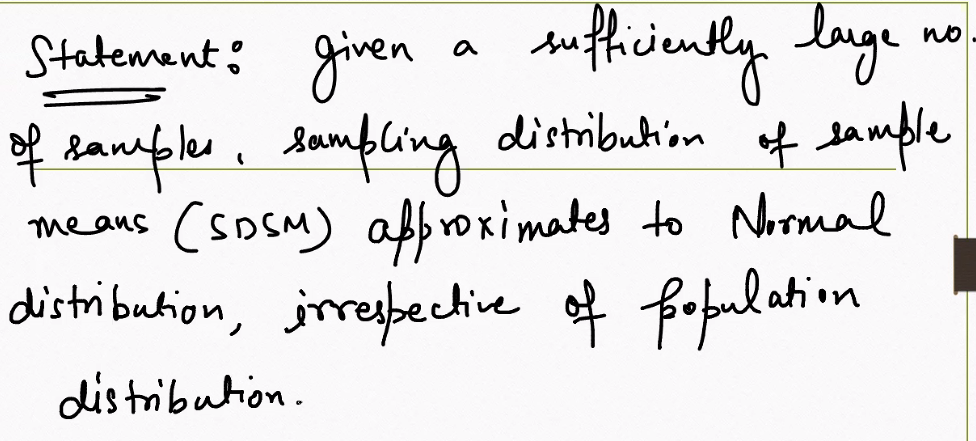 Statement: given a sufficiently large no.
of samples, sampling distribution of sample
means (SDSM) approximates to Normal
distribution, irrespective of population
distribution.